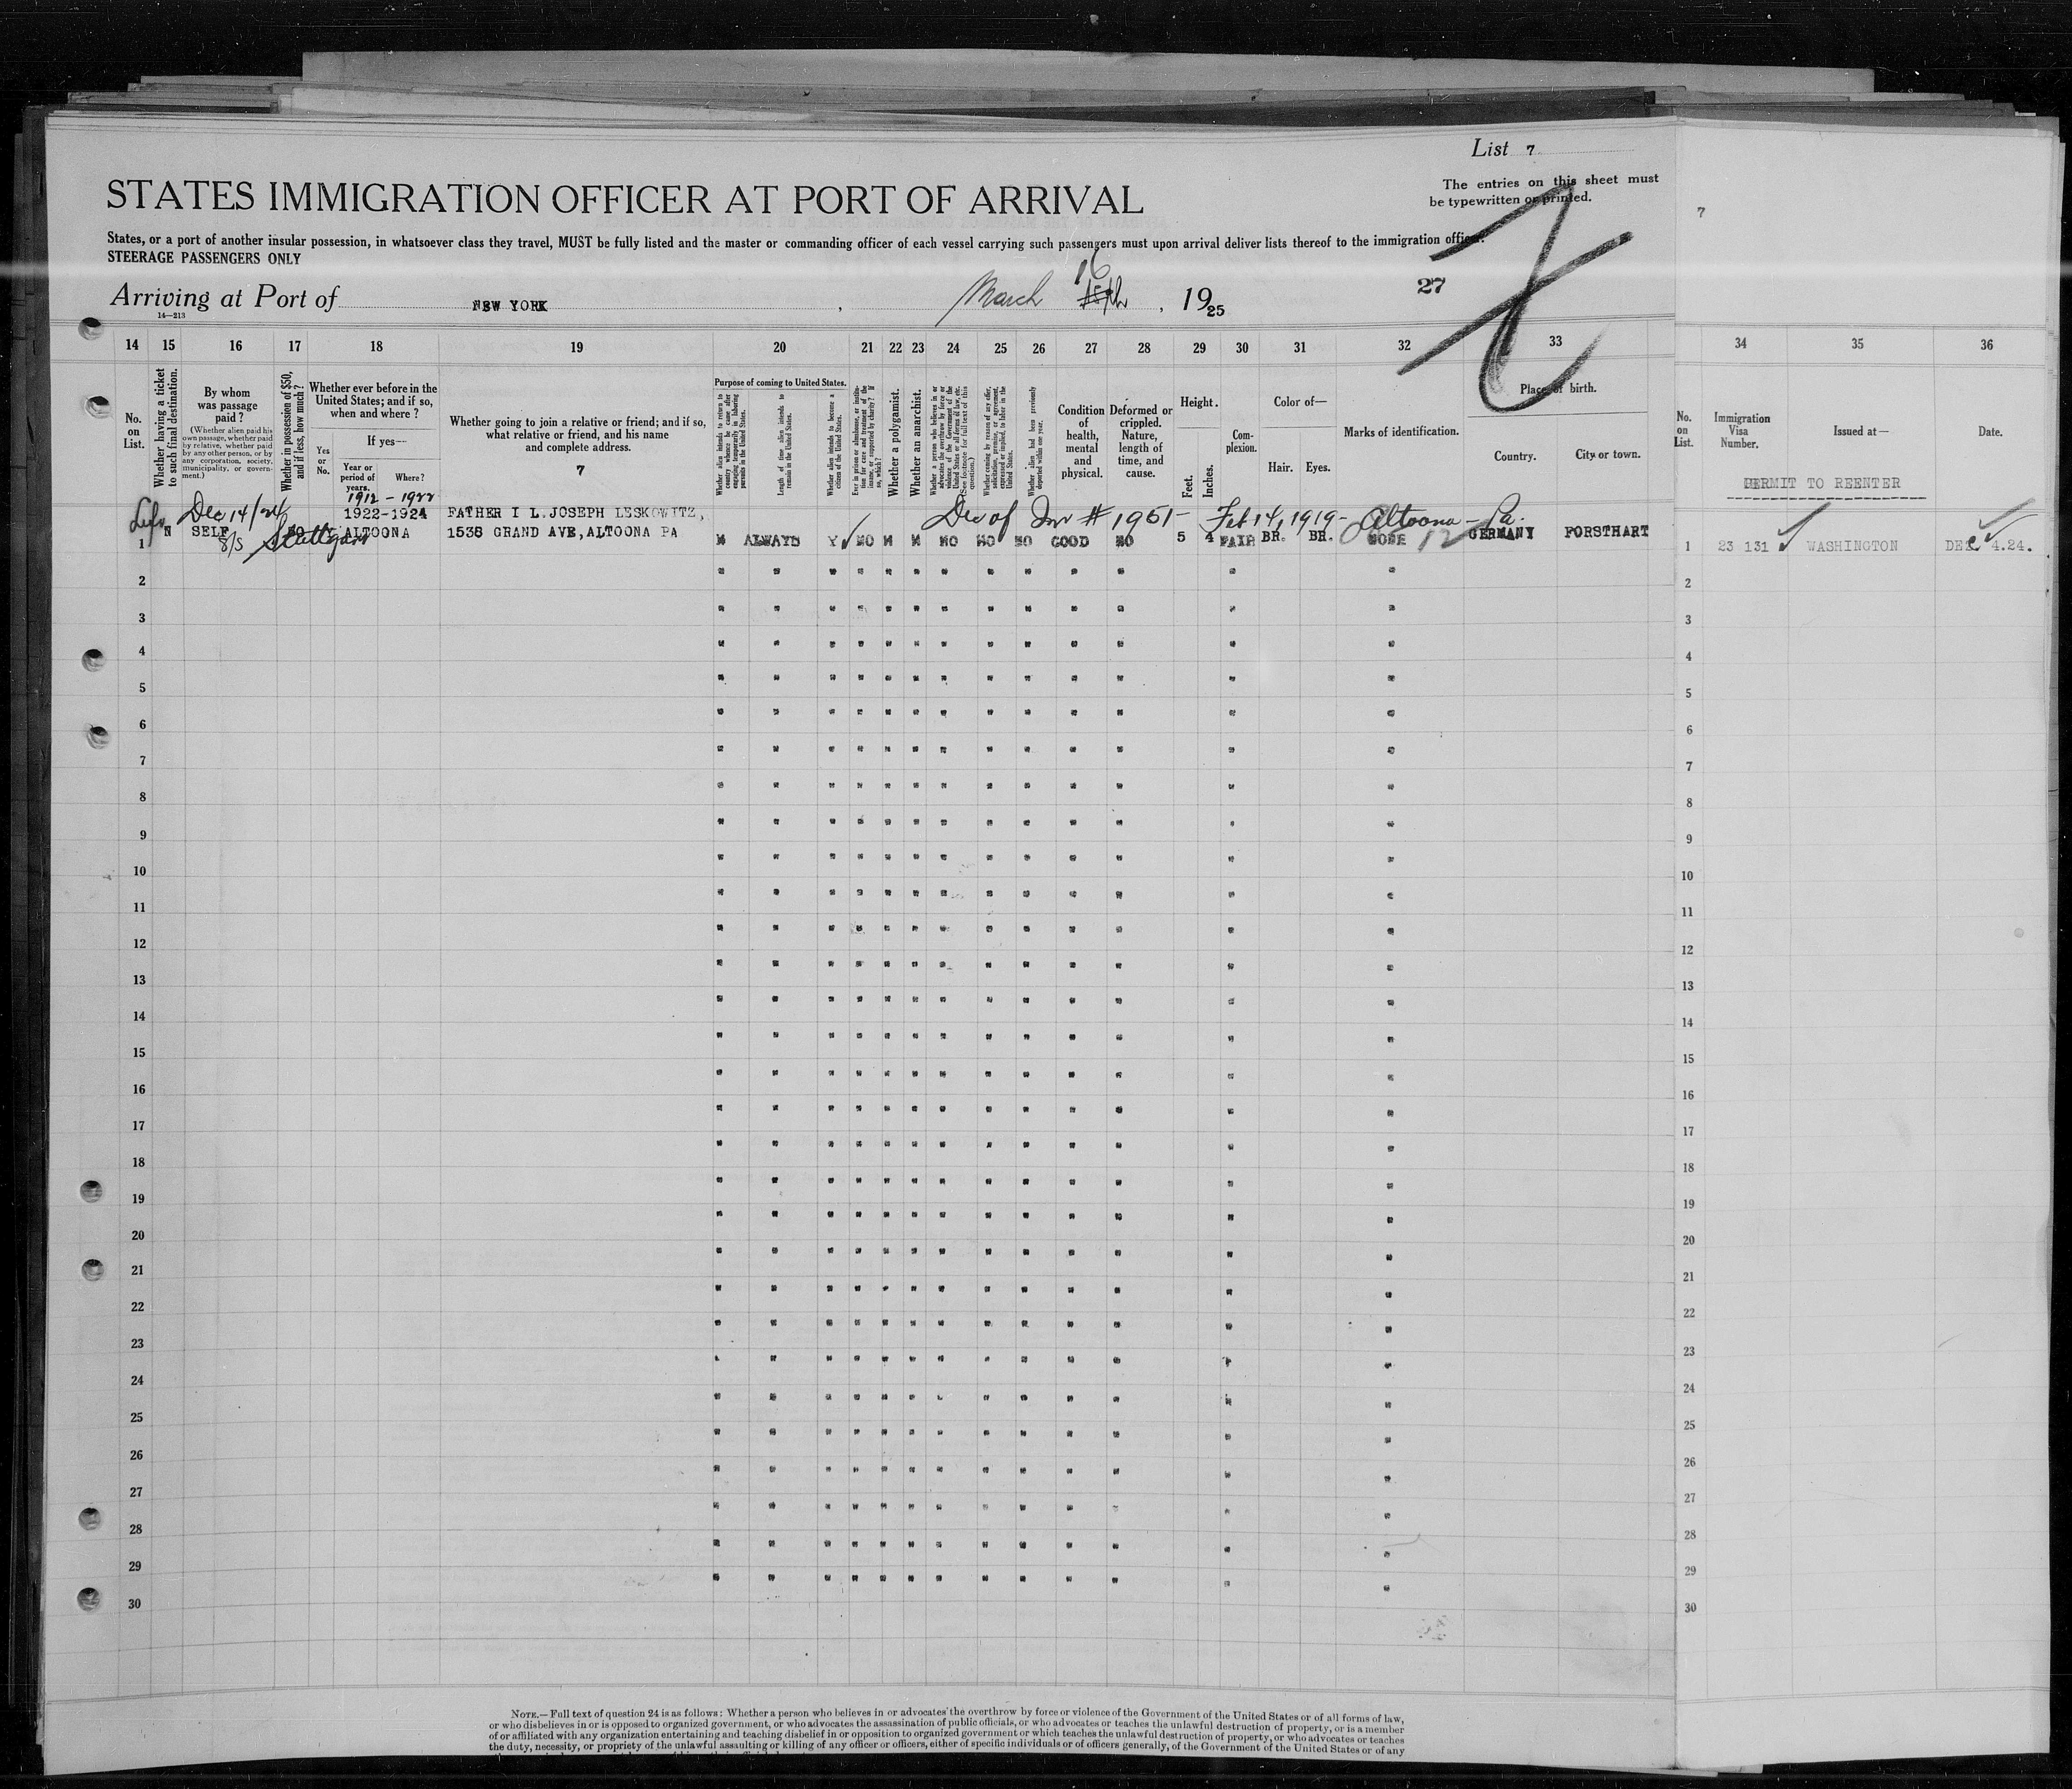 List 7
The entries on this sheet must
be typewritten or printed.
7
STATES IMMIGRATION OFFICER AT PORT OF ARRIVAL
States, or a port of another insular possession, in whatsoever class they travel, MUST be fully listed and the master or commanding officer of each vessel carrying such passengers must upon arrival deliver lists thereof to the immigration officer.
STEERAGE PASSENGERS ONLY
Arriving at Port of NEW YORK, March 16 15th, 1925
27
14—213
14 15 16 17 18 19 20 21 22 23 24 25 26 27 28 29 30 31 32 33 34 35 36
No. on List.
Whether having a ticket to such final destination.
By whom was passage paid?
(Whether alien paid his own passage, whether paid by relative, whether paid by any other person, or by any corporation, society, municipality, or government.)
Whether in possession of $50, and if less, how much?
Whether ever before in the United States; and if so, when and where?
Yes or No.
If yes—
Year or period of years.
Where?
Whether going to join a relative or friend; and if so, what relative or friend, and his name and complete address.
7
Purpose of coming to United States.
Whether alien intends to return to country whence he came after engaging temporarily in laboring pursuits in the United States.
Length of time alien intends to remain in the United States.
Whether alien intends to become a citizen of the United States.
Ever in prison or almshouse, or institution for care and treatment of the insane, or supported by charity? If so, which?
Whether a polygamist.
Whether an anarchist.
Whether a person who believes in or advocates the overthrow by force or violence of the Government of the United States or all forms of law, etc. (See footnote for full text of this question.)
Whether coming by reason of any offer, solicitation, promise, or agreement, expressed or implied, to labor in the United States.
Whether alien had been previously deported within one year.
Condition of health, mental and physical.
Deformed or crippled. Nature, length of time, and cause.
Height.
Feet. Inches.
Complexion.
Color of—
Hair. Eyes.
Marks of identification.
Place of birth.
Country. City or town.
No. on List.
Immigration Visa Number.
Issued at—
Date.
PERMIT TO REENTER
1912 - 1922
Dec 14/24 1922-1924 FATHER I L.JOSEPH LESKOWITZ, Dec of Inv # 1951 - Feb 14, 1919 - Altoona - Pa.
1 N SELF 50 ALTOONA 1538 GRAND AVE,ALTOONA PA N ALWAYS Y NO N N NO NO NO GOOD NO 5 4 FAIR BR. BR. NONE 12 GERMANY FORSTHART 1 23 131 WASHINGTON DEC 4.24.
S/S Stuttgart
2 2
3 3
4 4
5 5
6 6
7 7
8 8
9 9
10 10
11 11
12 12
13 13
14 14
15 15
16 16
17 17
18 18
19 19
20 20
21 21
22 22
23 23
24 24
25 25
26 26
27 27
28 28
29 29
30 30
NOTE.—Full text of question 24 is as follows: Whether a person who believes in or advocates the overthrow by force or violence of the Government of the United States or of all forms of law,
or who disbelieves in or is opposed to organized government, or who advocates the assassination of public officials, or who advocates or teaches the unlawful destruction of property, or is a member
of or affiliated with any organization entertaining and teaching disbelief in or opposition to organized government or which teaches the unlawful destruction of property, or who advocates or teaches
the duty, necessity, or propriety of the unlawful assaulting or killing of any officer or officers, either of specific individuals or of officers generally, of the Government of the United States or of any